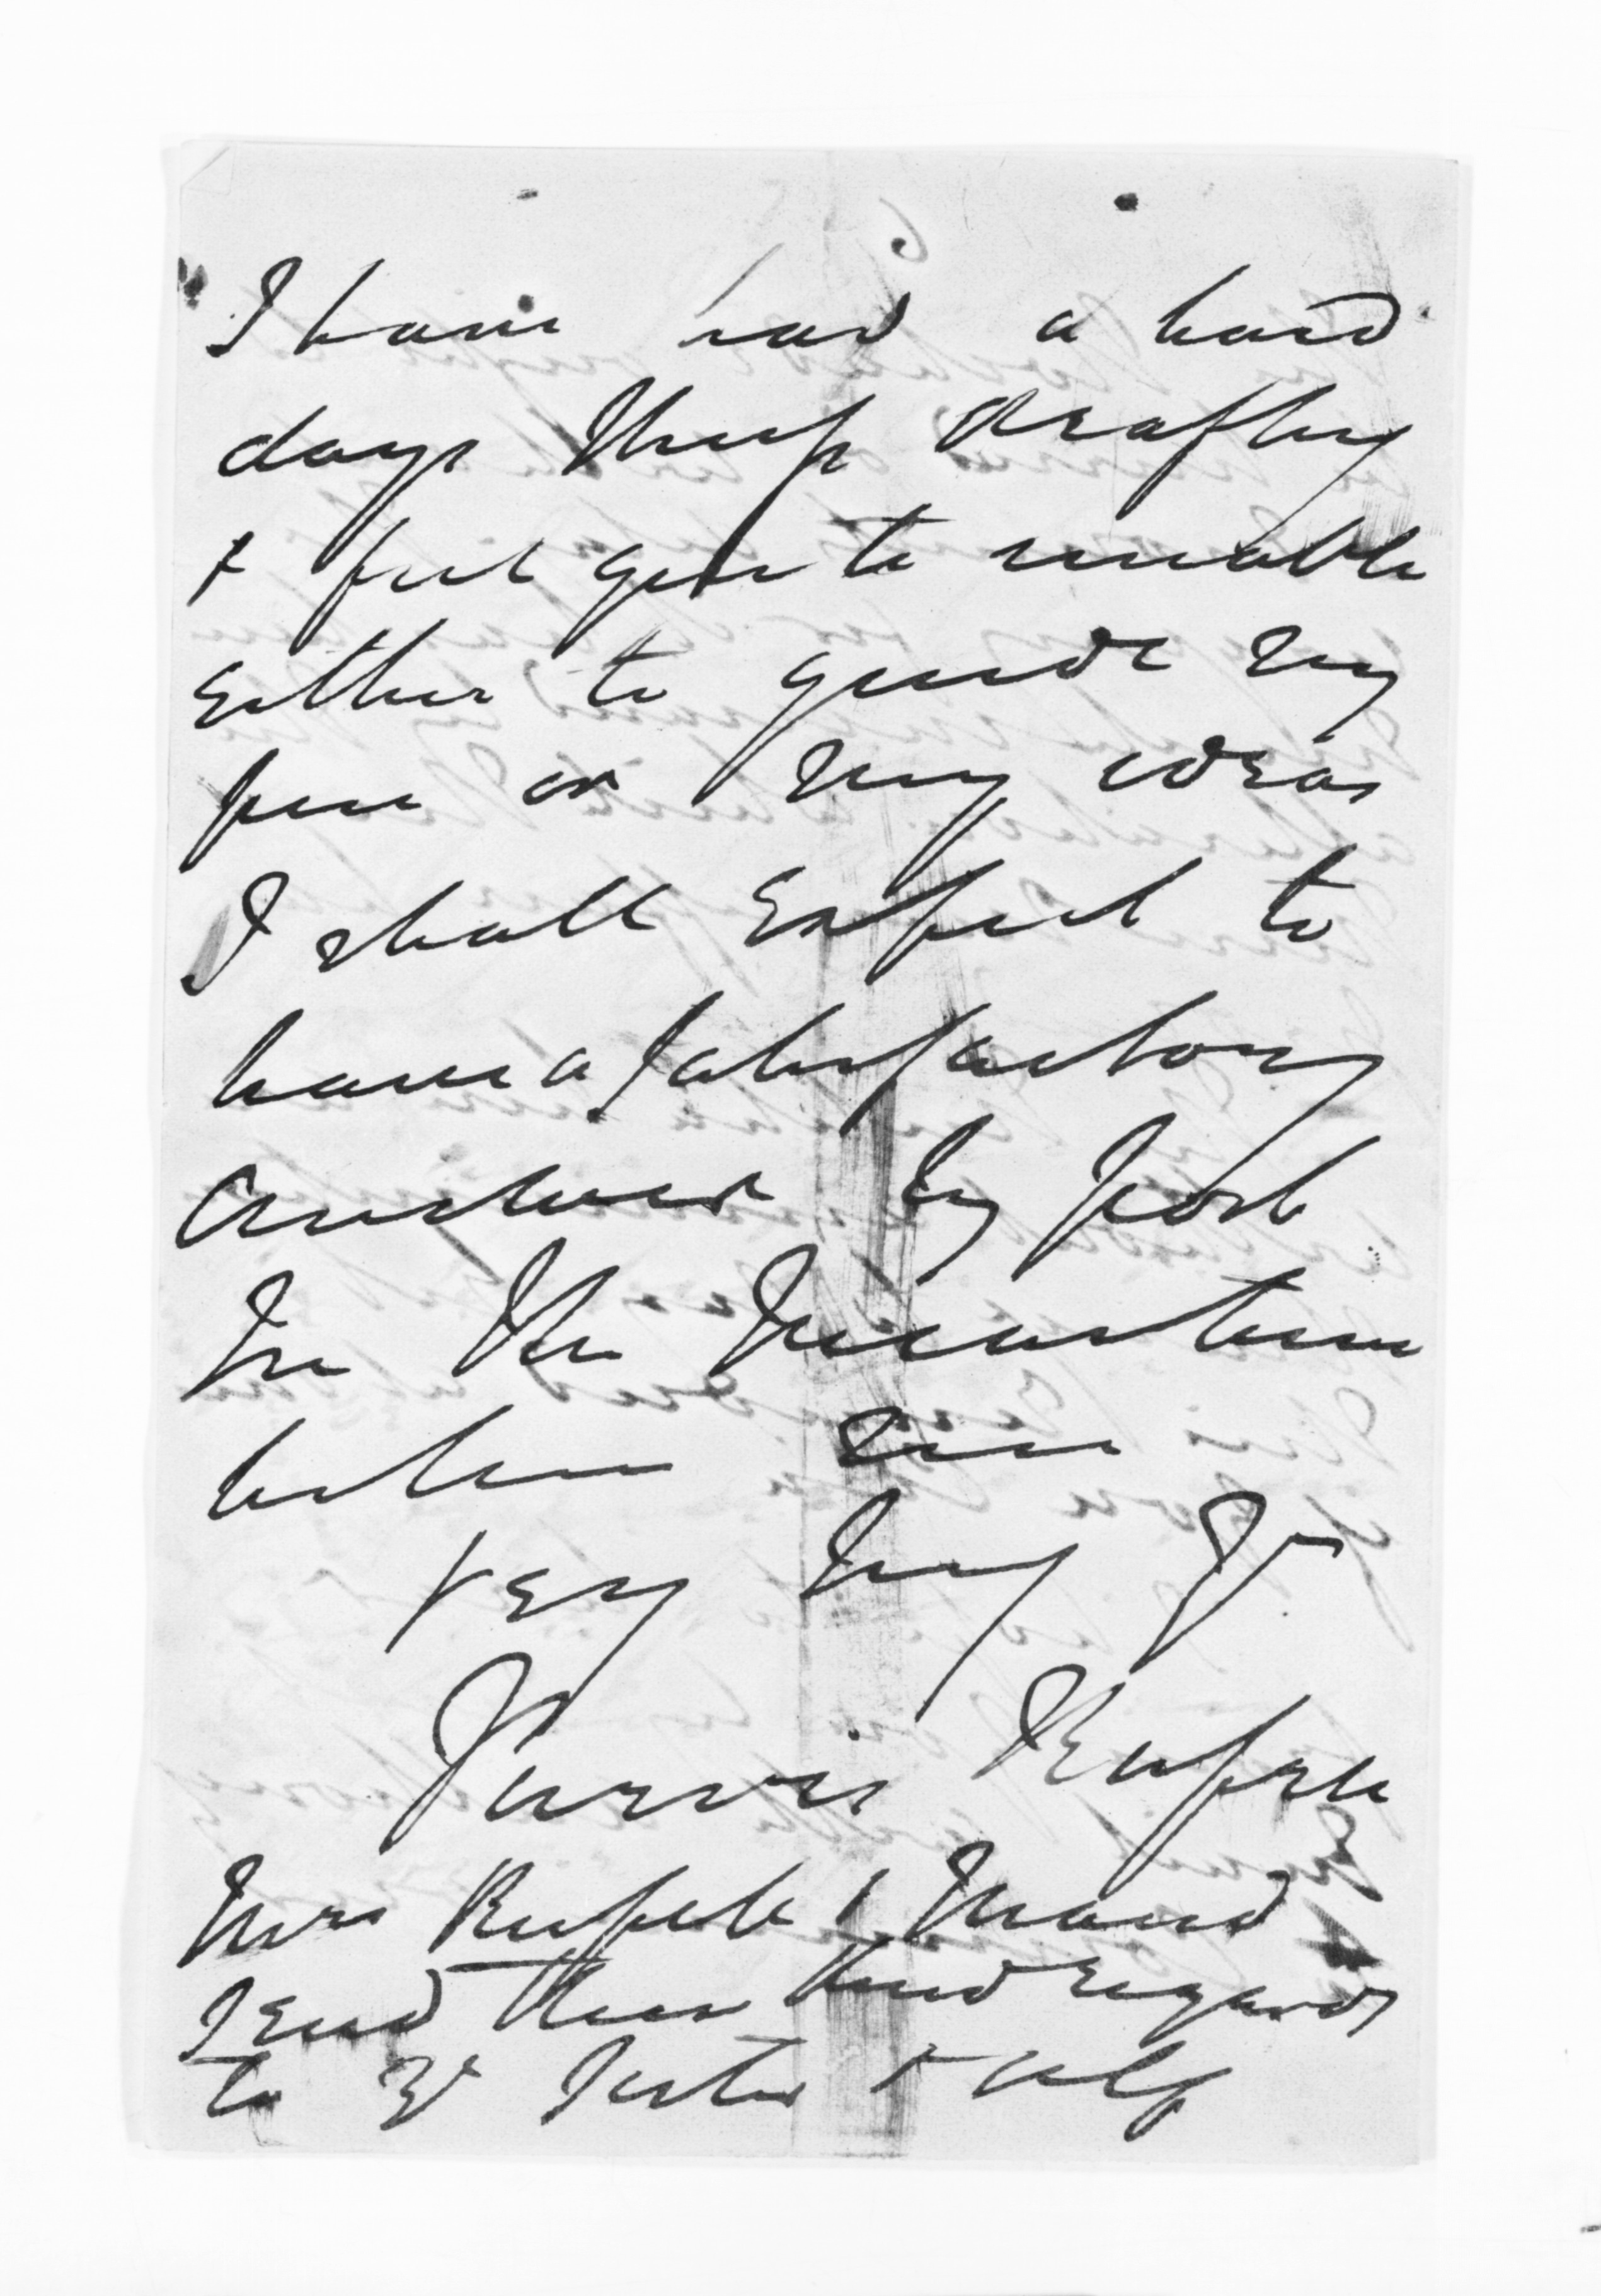 I have had a hard
days Sheep drafting
& feel quite unable
Either to guide my
pen or my ideas
I shall Expect to
have a Satisfactory
answer by post
In the meantime
believe me
very truly Yr
Purvis Russell
Mrs Russell & Maud
Send their kind regards
to Yr Sister & self